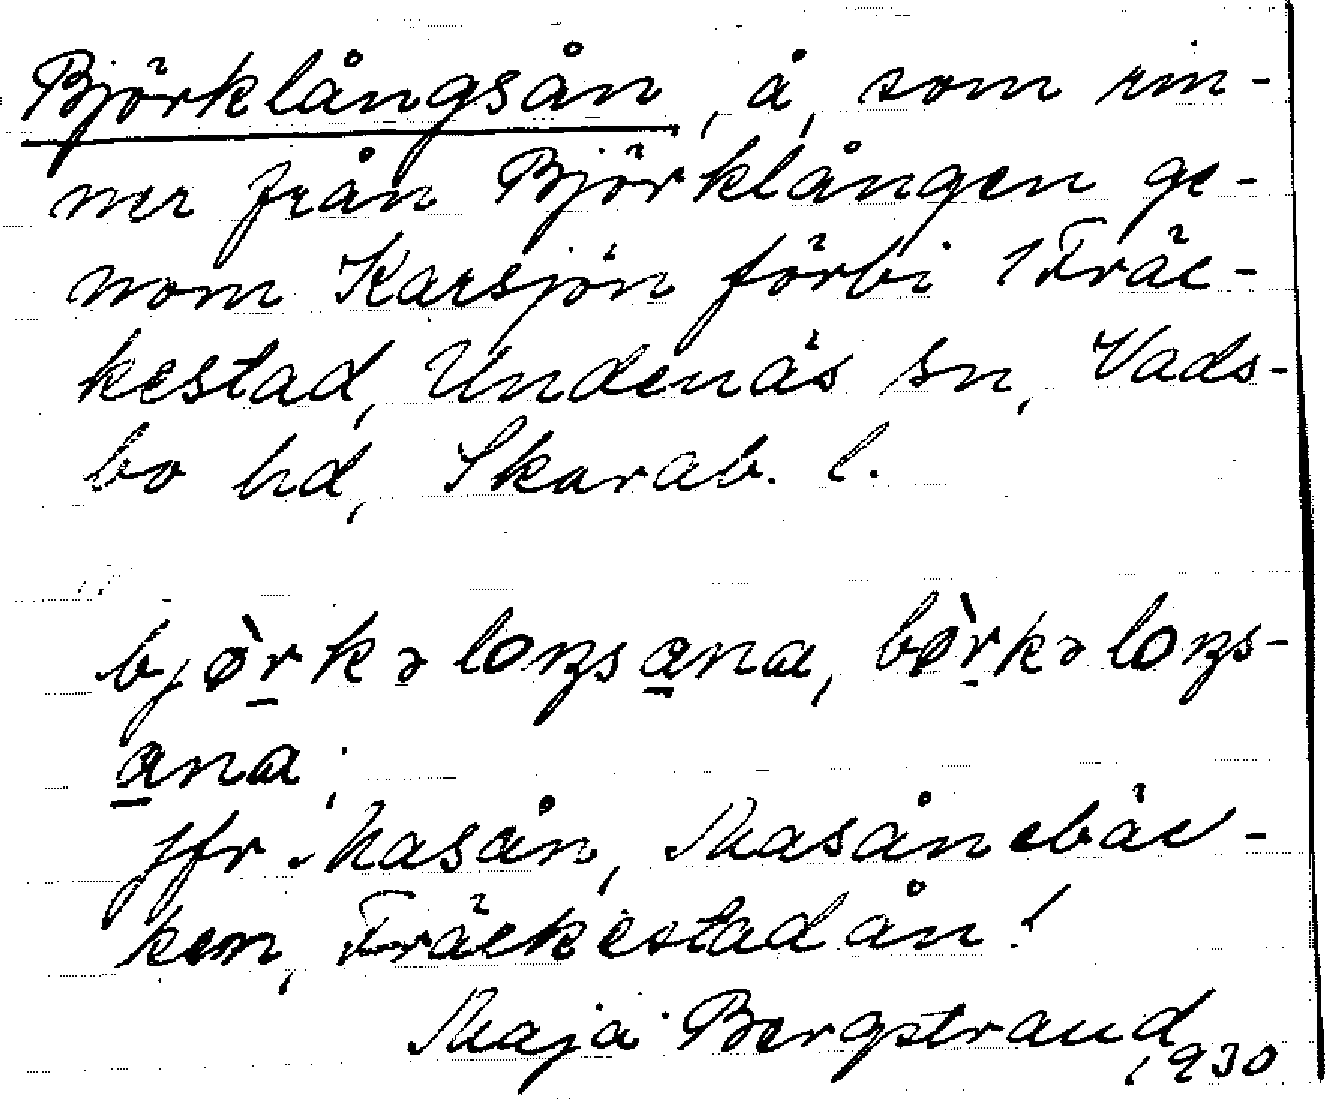 Björklångsån, å, som rin-
ner från Björklången ge-
nom Karsjön förbi Fräc-
kestad, Undenäs sn, Vads-
bo hd, Skarab. l.
bjòrkəloŋsana, bòrkəloŋs-
ana.
Jfr Masån, Masånebäc-
ken, Fräckestadån!
Maja Bergstrand
1930